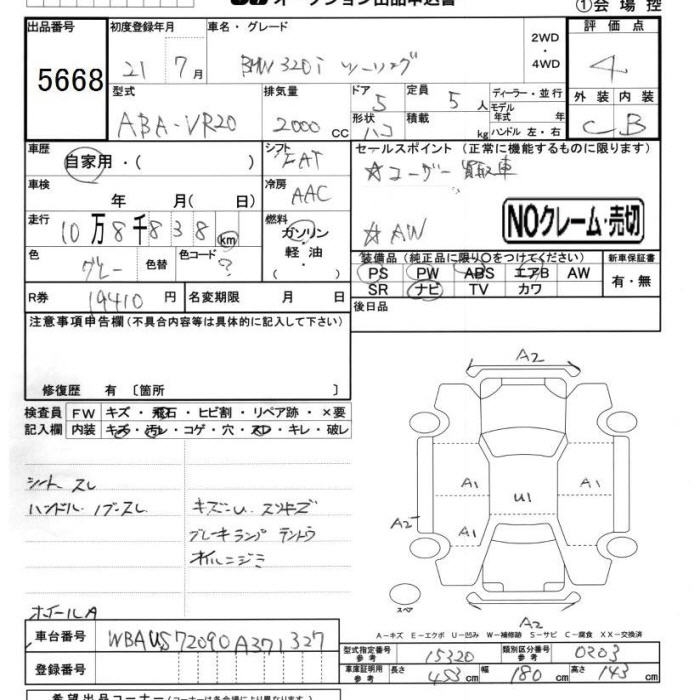 オークション出品申込書
①会場控
出品番号
初度登録年月
車名・グレード
評価点
5668
21 7月
BMW 320i ツーリング
2WD・4WD
4
型式
排気量
ドア 5
定員 5人
ディーラー・並行
外装 内装
ABA-VR20
2000cc
形状
積載 kg
モデル年式 年式
ハンドル 左・右
C B
車歴
自家用・( )
シフト FAT
セールスポイント (正常に機能するものに限ります)
☆ユーザー買取車
車検 年 月( 日)
冷房 AAC
☆AW
NOクレーム・売切
走行 10万8千838km
燃料 ガソリン・軽油・( )
色 グレー 色替
色コード ?
装備品 (純正品に限り○をつけてください)
新車保証書
PS PW ABS エアB AW
有・無
SR ナビ TV カワ
R券 19410円
名変期限 月 日
後日品
注意事項申告欄 (不具合内容等は具体的に記入して下さい)
修復歴 有 〔箇所 〕
検査員記入欄
FW キズ・飛石・ヒビ割・リペア跡・×要
内装 キズ・汚レ・コゲ・穴・スレ・キレ・破レ
A2
シート スレ
ハンドル ノブースレ
キズ〜U スリキズ
ブレーキランプ テントウ
オイルニジミ
A1 A1
U1
A2 A1
ホイールA
スペア
A2
A-キズ E-エクボ U-凹み W-補修跡 S-サビ C-腐食 XX-交換済
車台番号 WBAUS72090A371327
型式指定番号 参考 15320
類別区分番号 参考 0203
登録番号
車庫証明用 参考 長さ 453cm 幅 180cm 高さ 143cm
希望出品コーナー